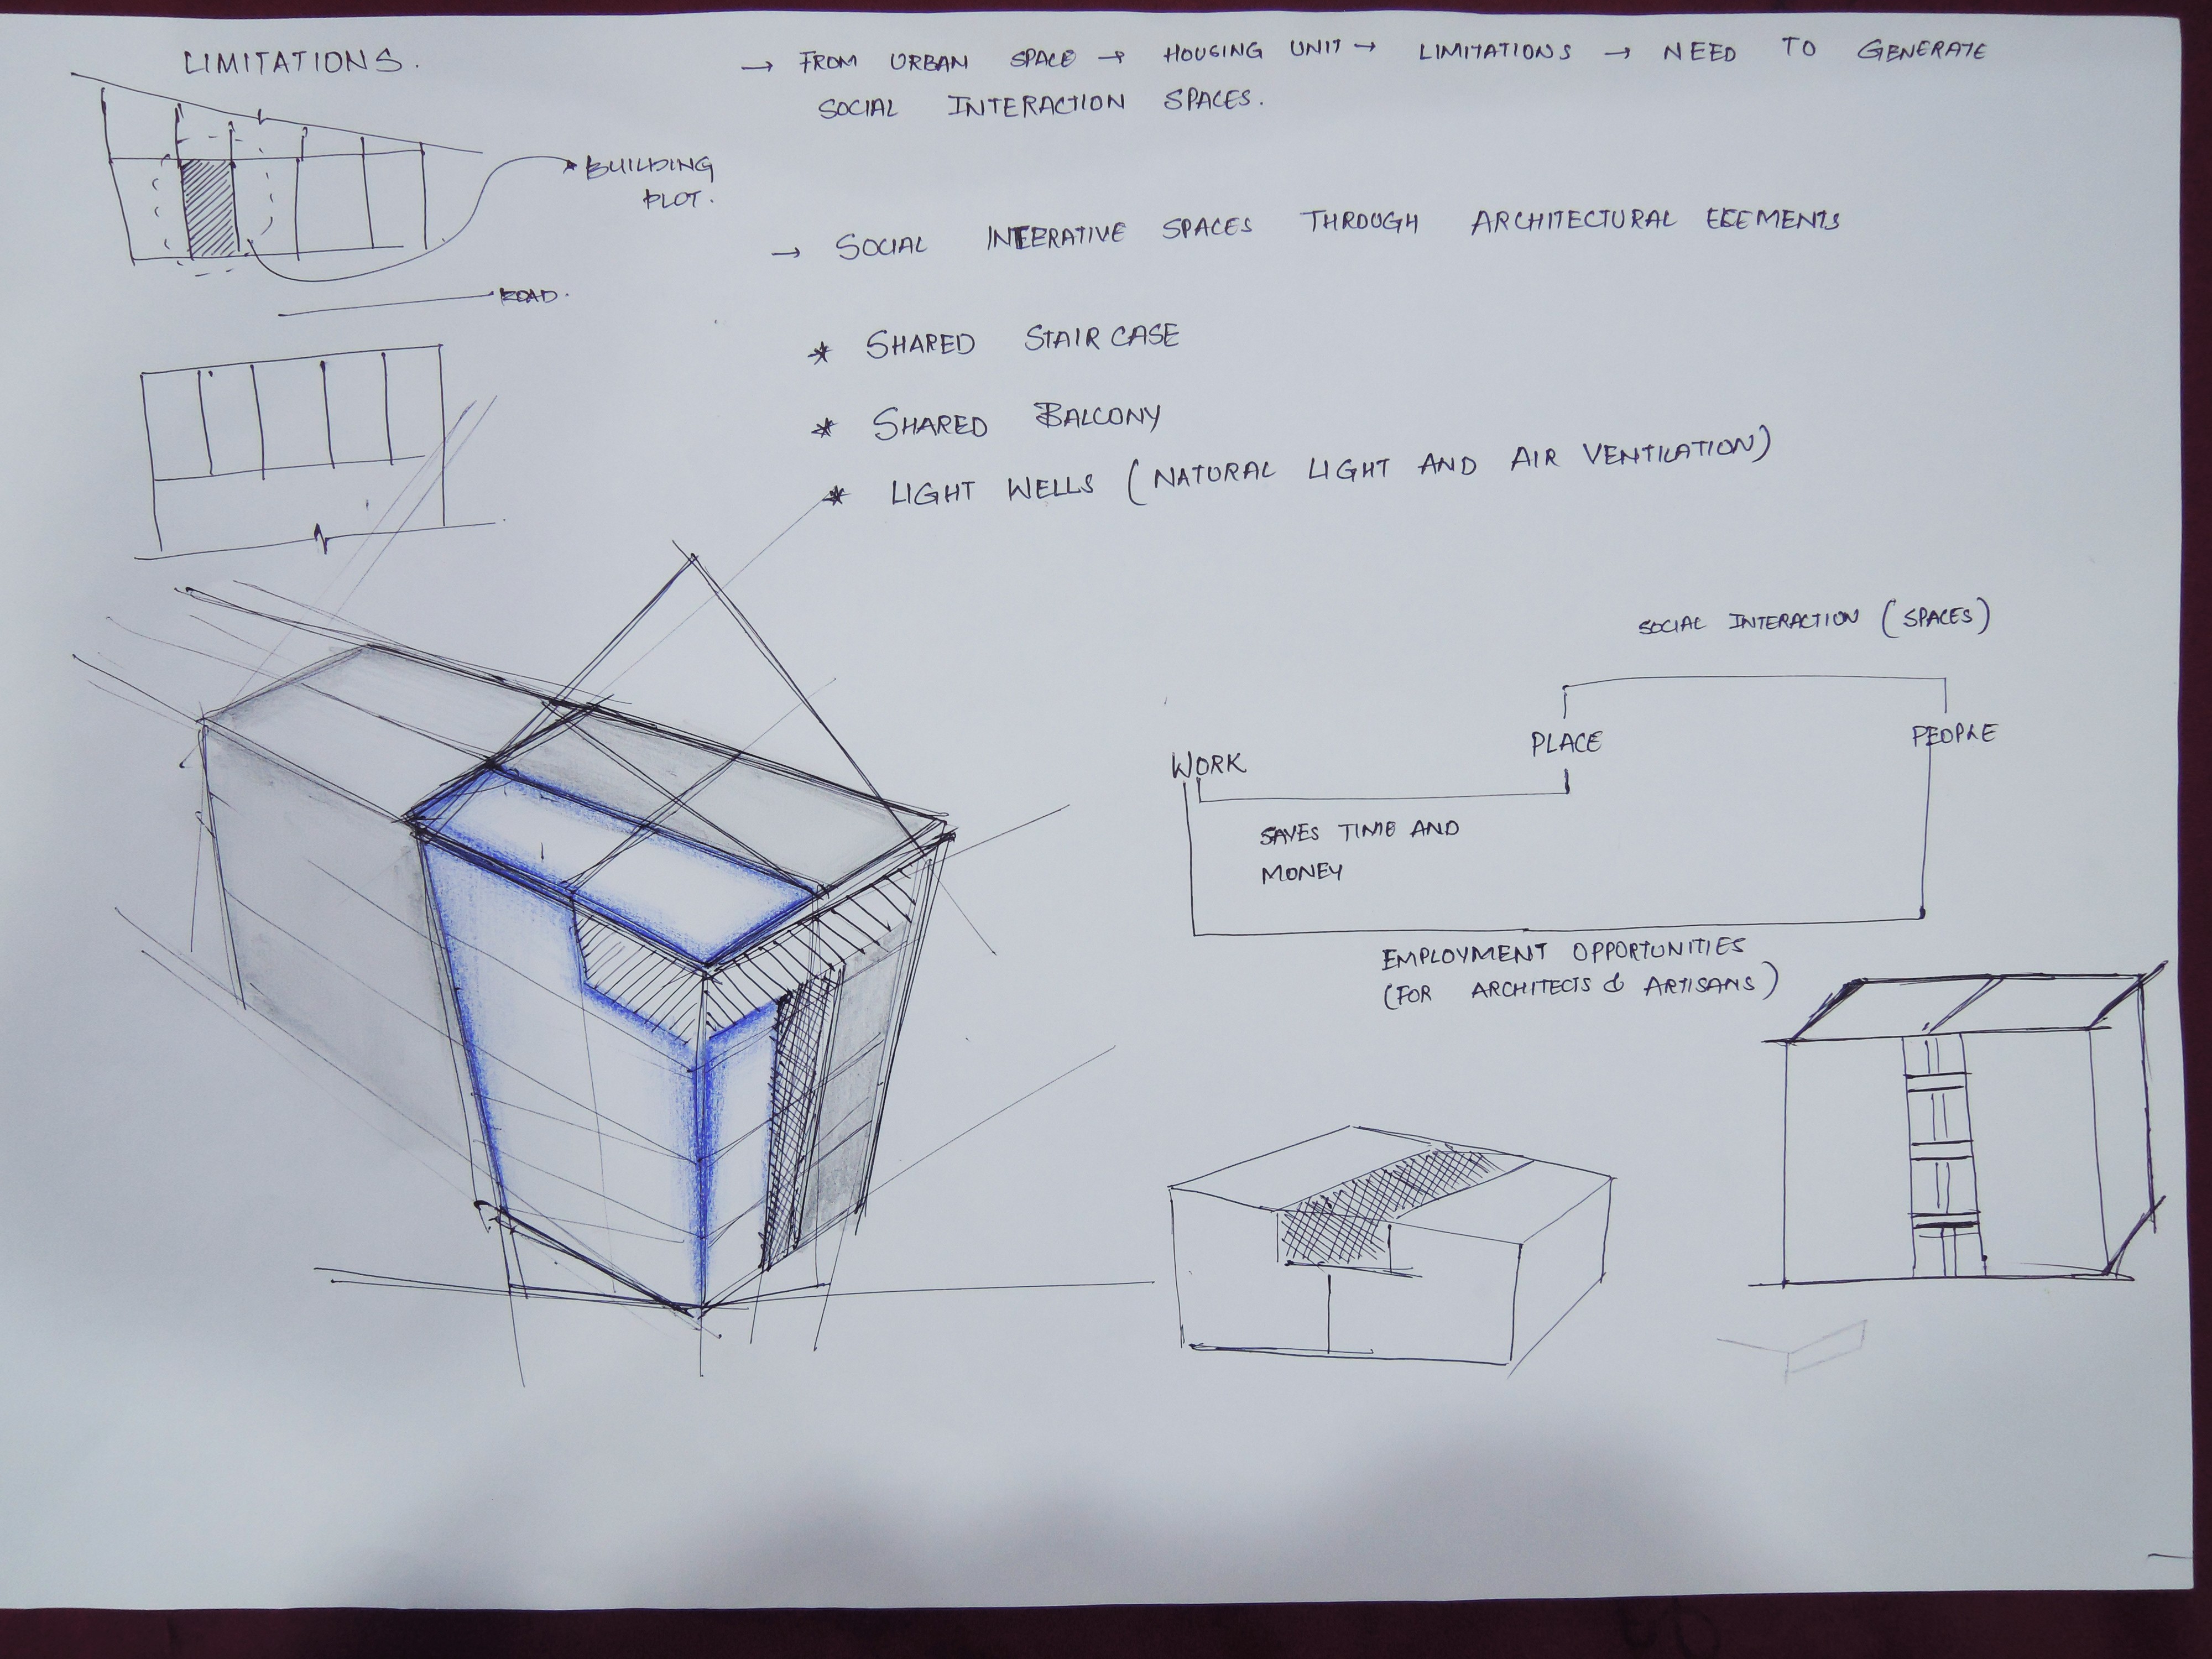 LIMITATIONS.
→ FROM URBAN SPACE → HOUSING UNIT → LIMITATIONS → NEED TO GENERATE
SOCIAL INTERACTION SPACES.
BUILDING
PLOT.
→ SOCIAL INTEERATIVE SPACES THROUGH ARCHITECTURAL ELEMENTS
ROAD.
* SHARED STAIR CASE
* SHARED BALCONY
* LIGHT WELLS (NATURAL LIGHT AND AIR VENTILATION)
SOCIAL INTERACTION (SPACES)
PLACE
PEOPLE
WORK
SAVES TIME AND
MONEY
EMPLOYMENT OPPORTUNITIES
(FOR ARCHITECTS & ARTISANS)